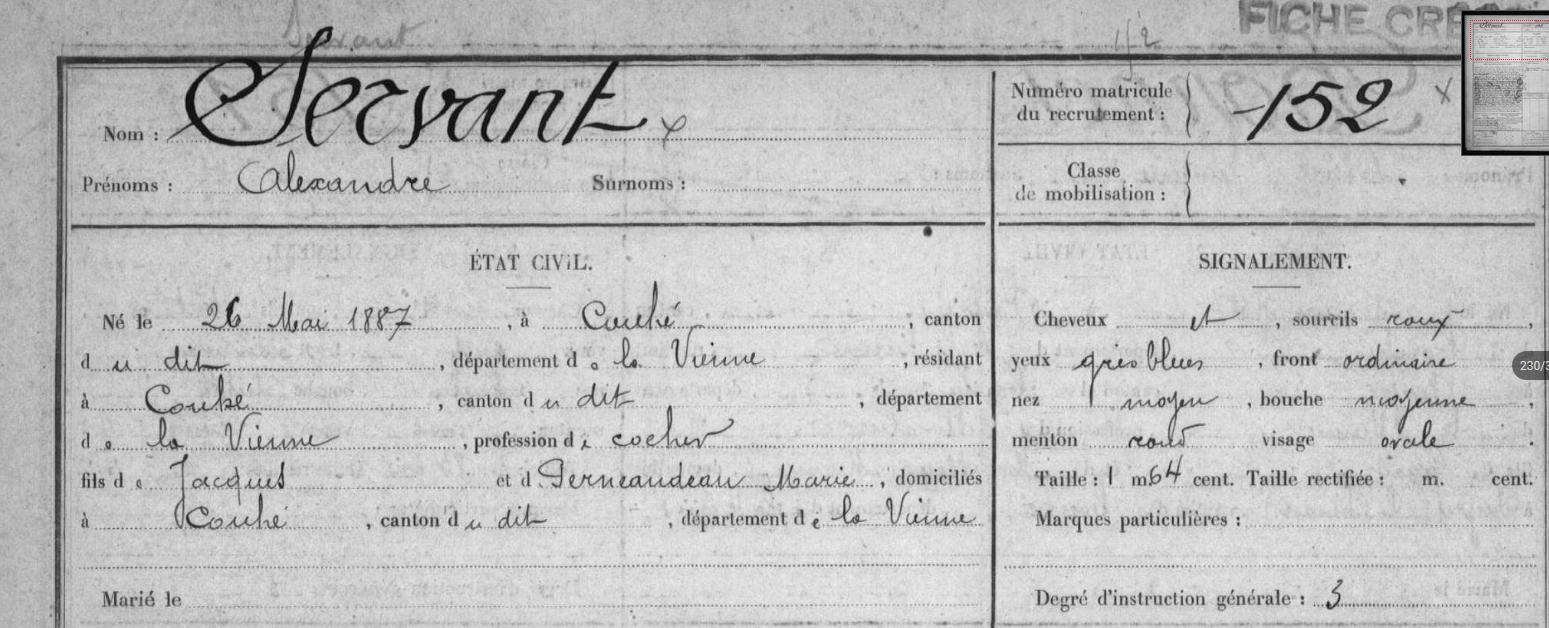 Servant
1/2
FICHE CRÉ
Nom : Servant x
Numéro matricule du recrutement : 152 x
Prénoms : Alexandre Surnoms :
Classe de mobilisation :
ÉTAT CIVIL.
Né le 26 Mai 1887, à Couhé, canton
du dit, département de la Vienne, résidant
à Couhé, canton du dit, département
de la Vienne, profession de cocher
fils de Jacques et d Marie, domiciliés
à Couhé, canton du dit, département de la Vienne
Marié le
SIGNALEMENT.
Cheveux et, sourcils roux,
yeux gris bleus, front ordinaire
nez moyen, bouche moyenne,
menton rond visage ovale.
Taille : 1 m 64 cent. Taille rectifiée : m. cent.
Marques particulières :
Degré d'instruction générale : 3
230/3